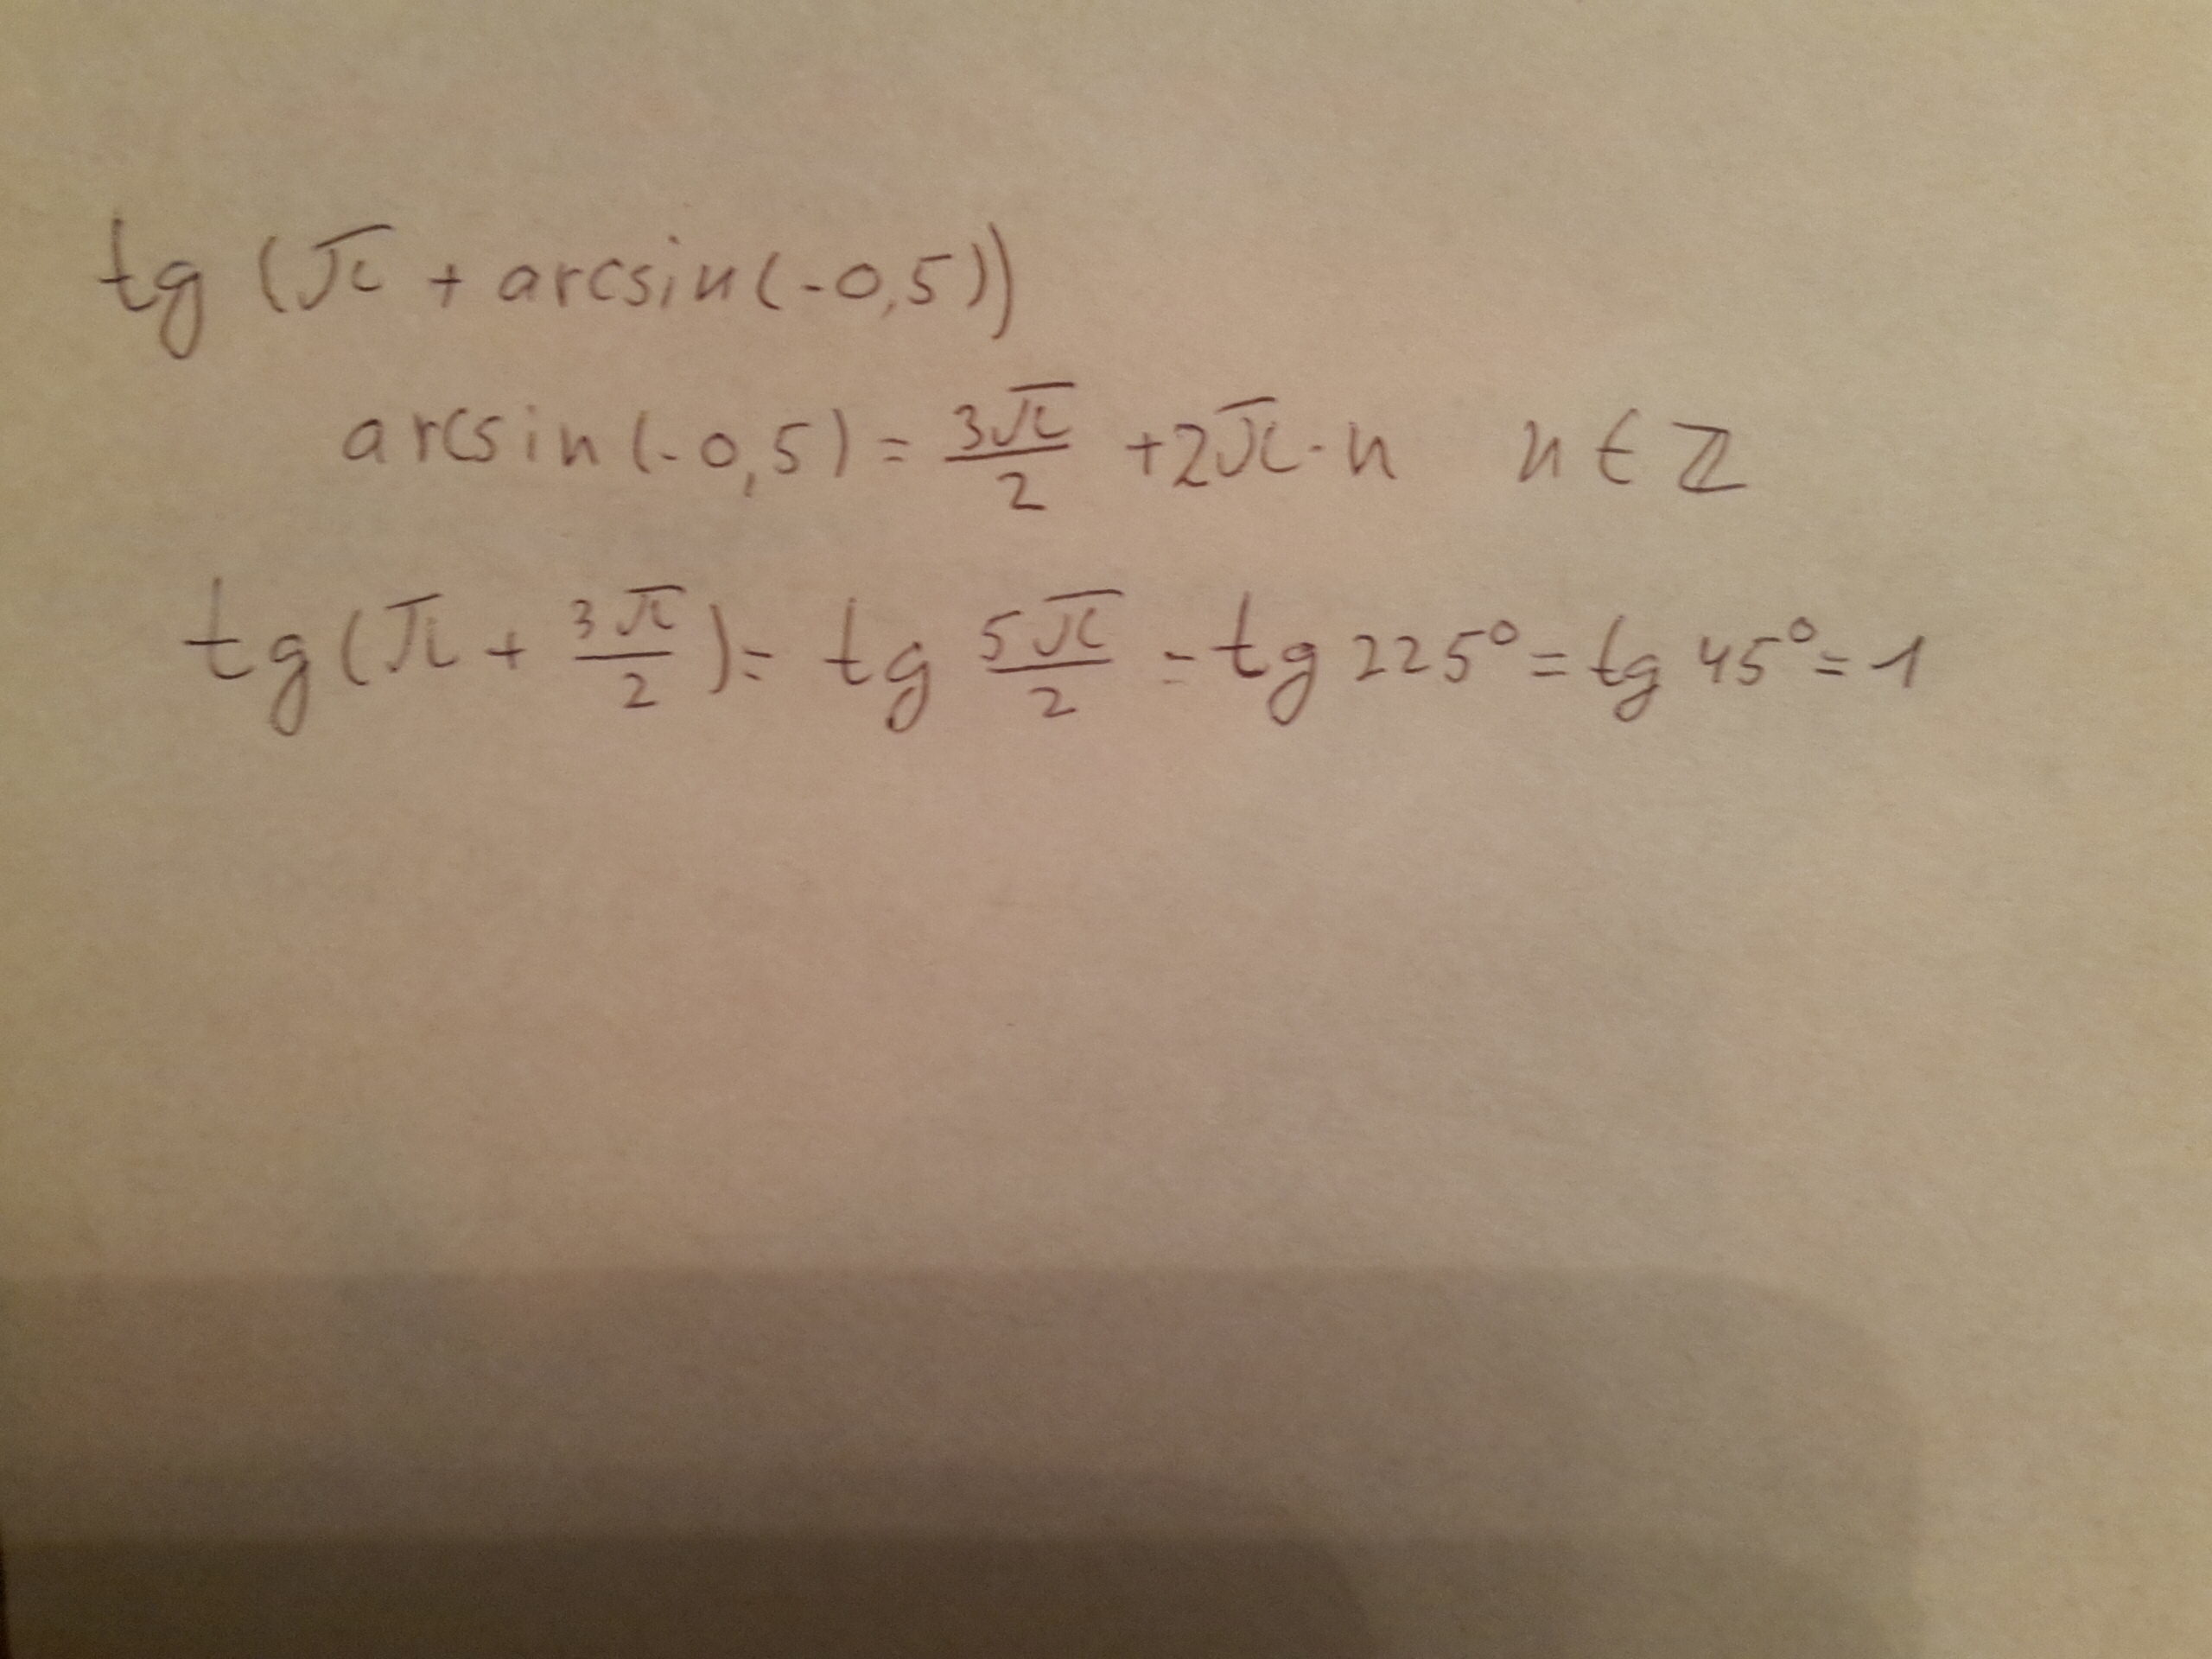 tg (π + arcsin(-0,5))
arcsin(-0,5) = 3π/2 + 2π·n n ∈ ℤ
tg(π + 3π/2) = tg 5π/2 = tg 225° = tg 45° = 1